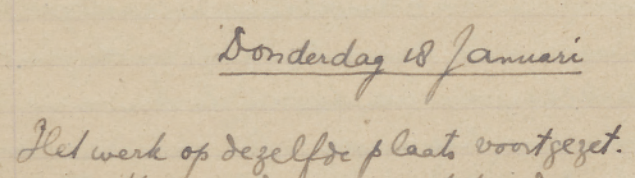 Donderdag 18 Januari
Het werk op dezelfde plaats voortgezet.